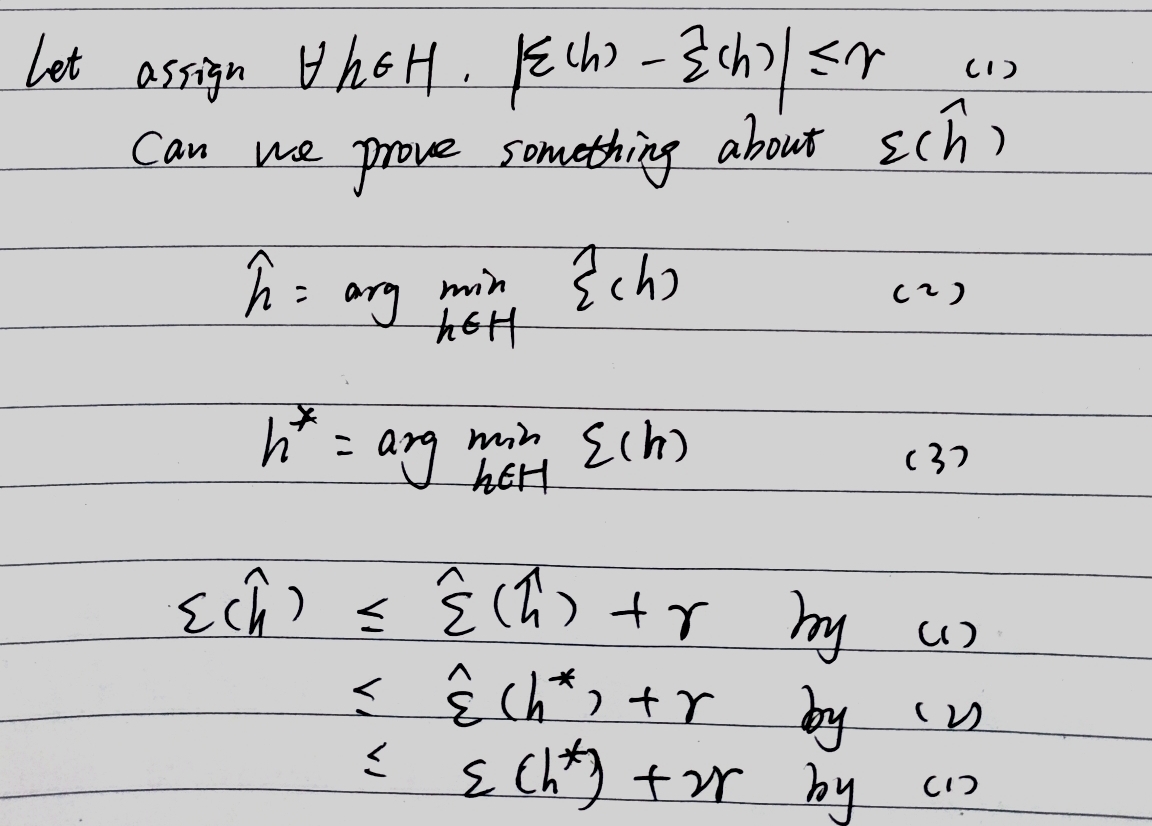 Let assign ∀ h∈H. |ε(h) - ε̂(h)| ≤ γ (1)
Can we prove something about ε(ĥ)
ĥ = arg min ε̂(h) (2)
h∈H
h* = arg min ε(h) (3)
h∈H
ε(ĥ) ≤ ε̂(ĥ) + γ by (1)
≤ ε̂(h*) + γ by (2)
≤ ε(h*) + 2γ by (1)